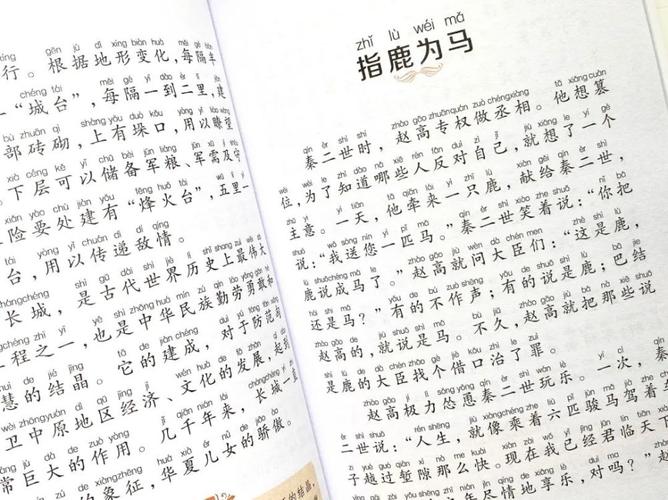 xíng gēn jù dì xíng biàn huà měi gé
行。根据地形变化，每隔半
chéng tái měi gé yī dào èr lǐ jiàn
“城台”，每隔一到二里，建
bù zhuān qì shàng yǒu duǒ kǒu yòng yǐ liào wàng
部砖砌，上有垛口，用以瞭望
xià céng kě yǐ chǔ bèi jūn liáng jūn xū jí
。下层可以储备军粮、军需及守
xiǎn yào chù jiàn yǒu fēng huǒ tái wǔ lǐ yī
险要处建有“烽火台”，五里一
tái yòng yǐ chuán dì dí qíng
台，用以传递敌情。
cháng chéng shì gǔ dài shì jiè lì shǐ shàng zuì wěi dà
长城，是古代世界历史上最伟大
chéng zhī yī yě shì zhōng huá mín zú qín láo yǒng gǎn hé
程之一，也是中华民族勤劳勇敢和
huì de jié jīng tā de jiàn chéng duì yú fáng fàn
慧的结晶。它的建成，对于防范匈
wèi zhōng yuán dì qū jīng jì wén huà de fā zhǎn
卫中原地区经济、文化的发展，起到
cháng jù dà de zuò yòng jǐ qiān nián lái cháng chéng yī
常巨大的作用。几千年来，长城一直
de xiàng zhēng huá xià ér nǚ de jiāo ào
的象征，华夏儿女的骄傲。
zhǐ lù wéi mǎ
指鹿为马
qín èr shì shí zhào gāo zhuān quán zuò chéng xiàng tā xiǎng cuàn
秦二世时，赵高专权做丞相。他想篡
wèi wèi le zhī dào nǎ xiē rén fǎn duì zì jǐ jiù xiǎng le yī gè
位，为了知道哪些人反对自己，就想了一个
zhǔ yi yī tiān tā qiān lái yī zhī lù xiàn gěi qín èr shì
主意。一天，他牵来一只鹿，献给秦二世，
shuō wǒ sòng nín yī pǐ mǎ qín èr shì xiào zhe shuō nǐ bǎ
说：“我送您一匹马。”秦二世笑着说：“你把
lù shuō chéng mǎ le zhào gāo jiù wèn dà chén men zhè shì lù
鹿说成马了。”赵高就问大臣们：“这是鹿，
hái shì mǎ yǒu de bù zuò shēng yǒu de shuō shì lù bā jié
还是马？”有的不作声；有的说是鹿；巴结
zhào gāo de jiù shuō shì mǎ bù jiǔ zhào gāo jiù bǎ nà xiē shuō
赵高的，就说是马。不久，赵高就把那些说
shì lù de dà chén zhǎo gè jiè kǒu zhì le zuì
是鹿的大臣找个借口治了罪。
zhào gāo jí lì sǒng yǒng qín èr shì wán lè yī cì qín
赵高极力怂恿秦二世玩乐。一次，秦
èr shì shuō rén shēng jiù xiàng chéng zhe liù pǐ jùn mǎ jià zhe
二世说：“人生，就像乘着六匹骏马驾着
子越过堑隙那么快。现在我已经君临天下
地享乐，对吗？”